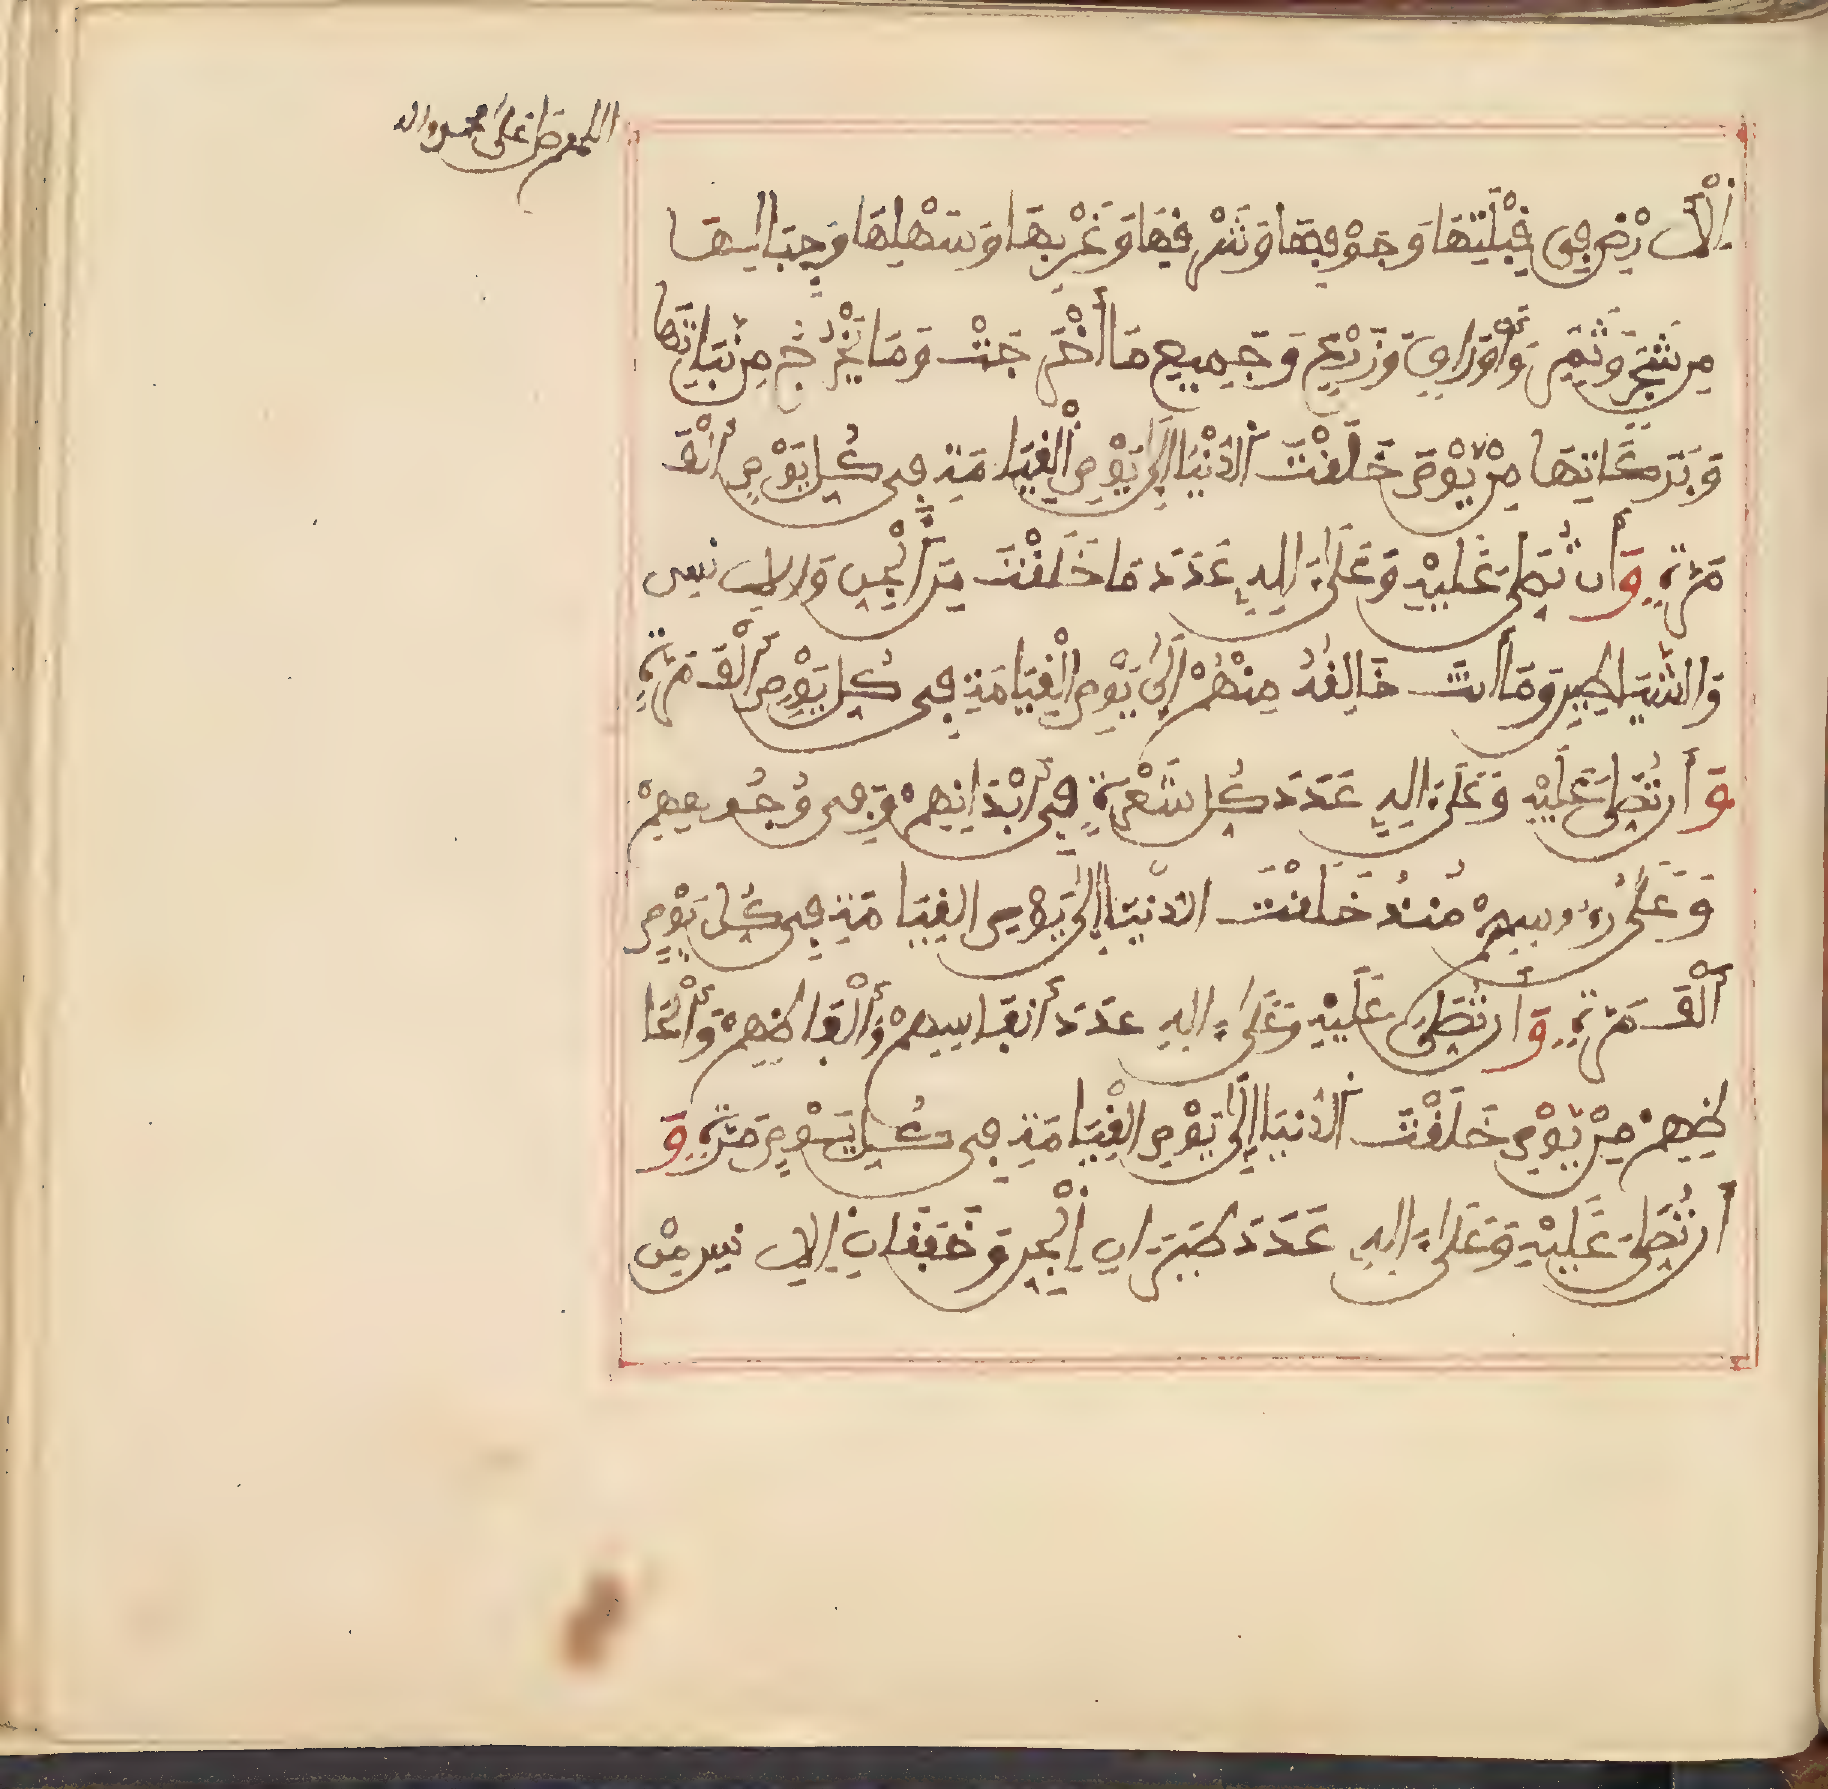 اللهم صل على محمد واله
اِلْاَرْضِ فِي قِبْلَتِهَا وَجَوْفِهَا وَشَرْقِهَا وَغَرْبِهَا وَسَهْلِهَا وَجِبَالِهَا
مِن شَجَرٍ وَثَمَرٍ وَأَوْرَاقٍ وَزَرْعٍ وَجَمِيعِ مَا أَخْرَجَتْ وَمَا يَخْرُجُ مِن نَّبَاتِهَا
وَبَرَكَاتِهَا مِنْ يَوْمَ خَلَقْتَ الدُّنْيَا إِلَى يَوْمِ الْقِيَامَةِ فِي كُلِّ يَوْمٍ أَلْفَ
مَرَّةٍ وَأَن تُصَلِّيَ عَلَيْهِ وَعَلَى ءَالِهِ عَدَدَ مَا خَلَقْتَ مِنَ الْجِنِّ وَالِانسِ
وَالشَّيَاطِينِ وَمَا أَنتَ خَالِقُهُ مِنْهُمْ إِلَى يَوْمِ الْقِيَامَةِ فِي كُلِّ يَوْمٍ أَلْفَ مَرَّةٍ
وَأَن تُصَلِّيَ عَلَيْهِ وَعَلَى ءَالِهِ عَدَدَ كُلِّ شَعْرَةٍ فِي أَبْدَانِهِمْ وَفِي وُجُوهِهِمْ
وَعَلَى رُءُوسِهِمْ مُنْذُ خَلَقْتَ الدنْيَا إِلَى يَوْمِ القِيَامَةِ فِي كُلِّ يَوْمٍ
أَلْفَ مَرَّةٍ وَأَن تُصَلِّيَ عَلَيْهِ وَعَلَى ءَالِهِ عَدَدَ أَنفَاسِهِمْ وَأَلْفَاظِهِمْ وَأَلْحَا
ظِهِمْ مِنْ يَوْمِ خَلَقْتَ الدُّنيَا إِلَى يَوْمِ الْقِيَامَةِ فِي كُلِّ يَوْمٍ مَرَّةٍ وَ
أَن تُصَلِّيَ عَلَيْهِ وَعَلَى ءَالِهِ عَدَدَ طَيَرَانِ اِلْجِنِّ وَخَفَقَانِ اِلِانسِ مِنْ